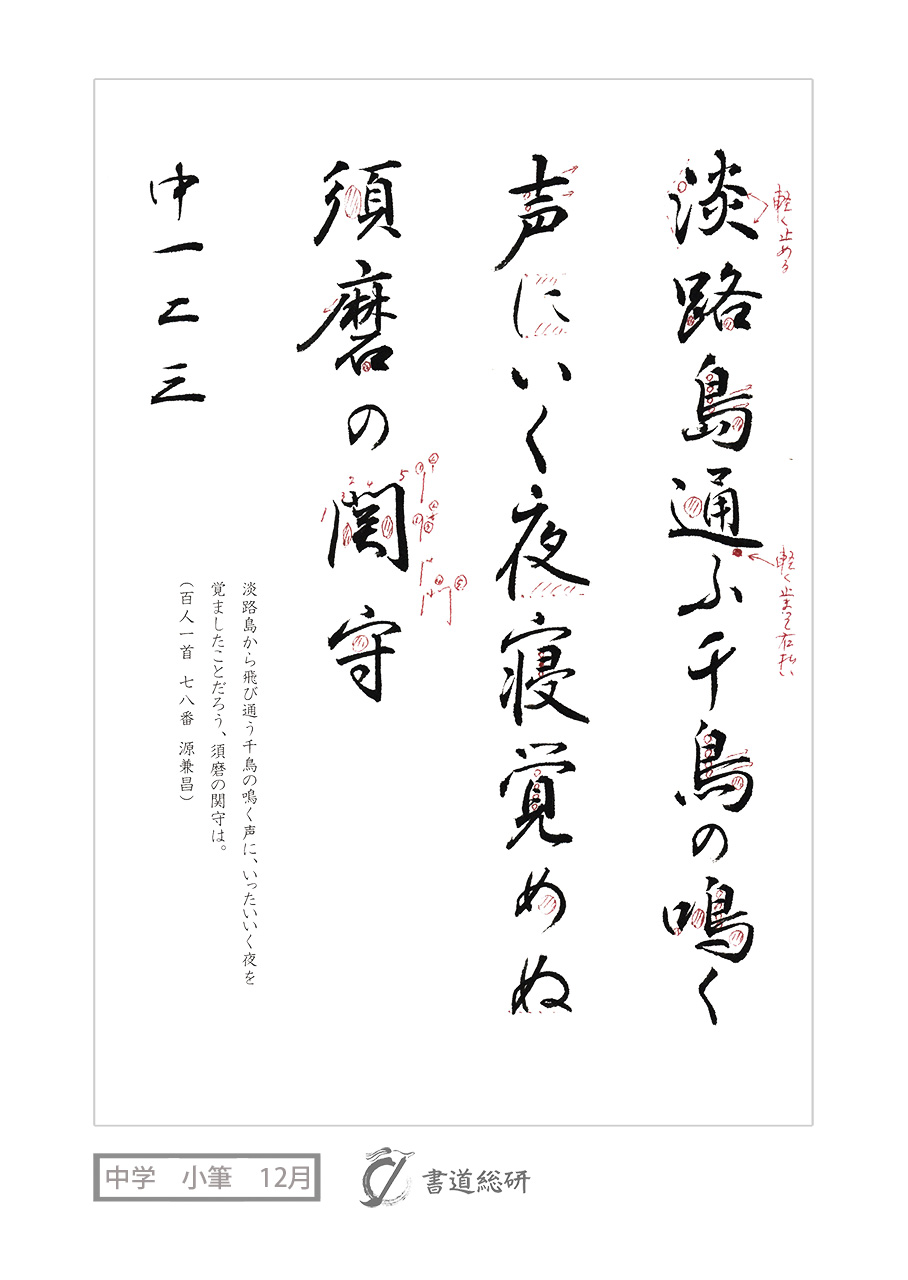 淡路島通ふ千鳥の鳴く
声にいく夜寝覚めぬ
須磨の関守
中一二三
軽く止める
軽く止まって右払い
淡路島から飛び通う千鳥の鳴く声に、いったいいく夜を
覚ましたことだろう、須磨の関守は。
（百人一首 七八番 源兼昌）
中学 小筆 12月
書道総研